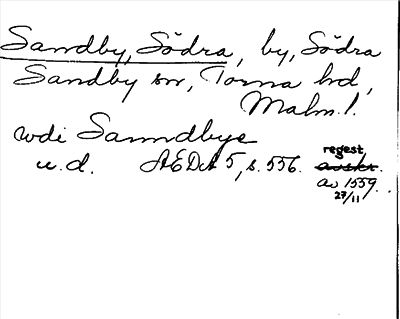 Sandby, Södra, by, Södra
Sandby sn, Torna hd,
Malm. l.
wdi Sanndbye
u.d. ÆDA 5, s. 556. regest
avskr.
av 1559
27/11